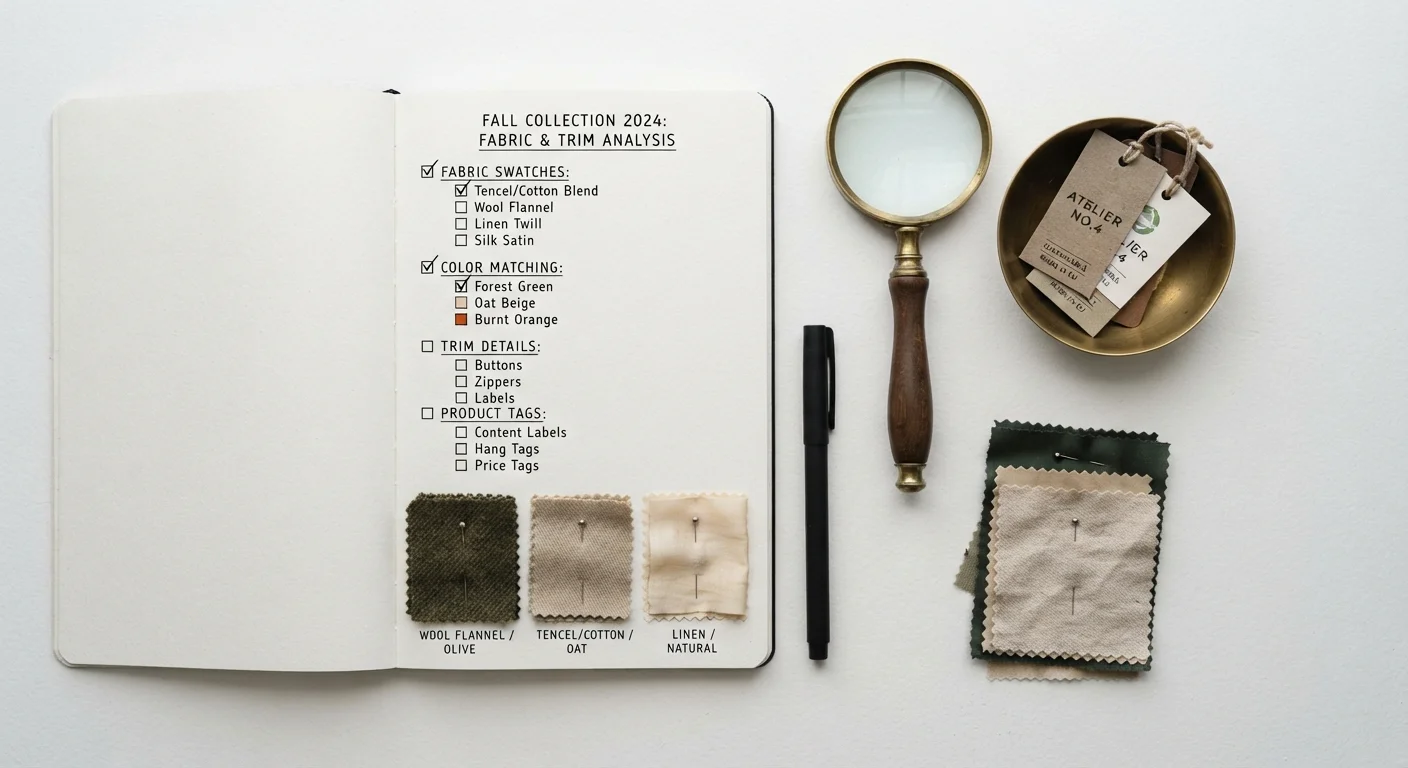 FALL COLLECTION 2024:
FABRIC & TRIM ANALYSIS
FABRIC SWATCHES:
Tencel/Cotton Blend
Wool Flannel
Linen Twill
Silk Satin
COLOR MATCHING:
Forest Green
Oat Beige
Burnt Orange
TRIM DETAILS:
Buttons
Zippers
Labels
PRODUCT TAGS:
Content Labels
Hang Tags
Price Tags
WOOL FLANNEL /
OLIVE
TENCEL/COTTON /
OAT
LINEN /
NATURAL
ATELIER
NO.4